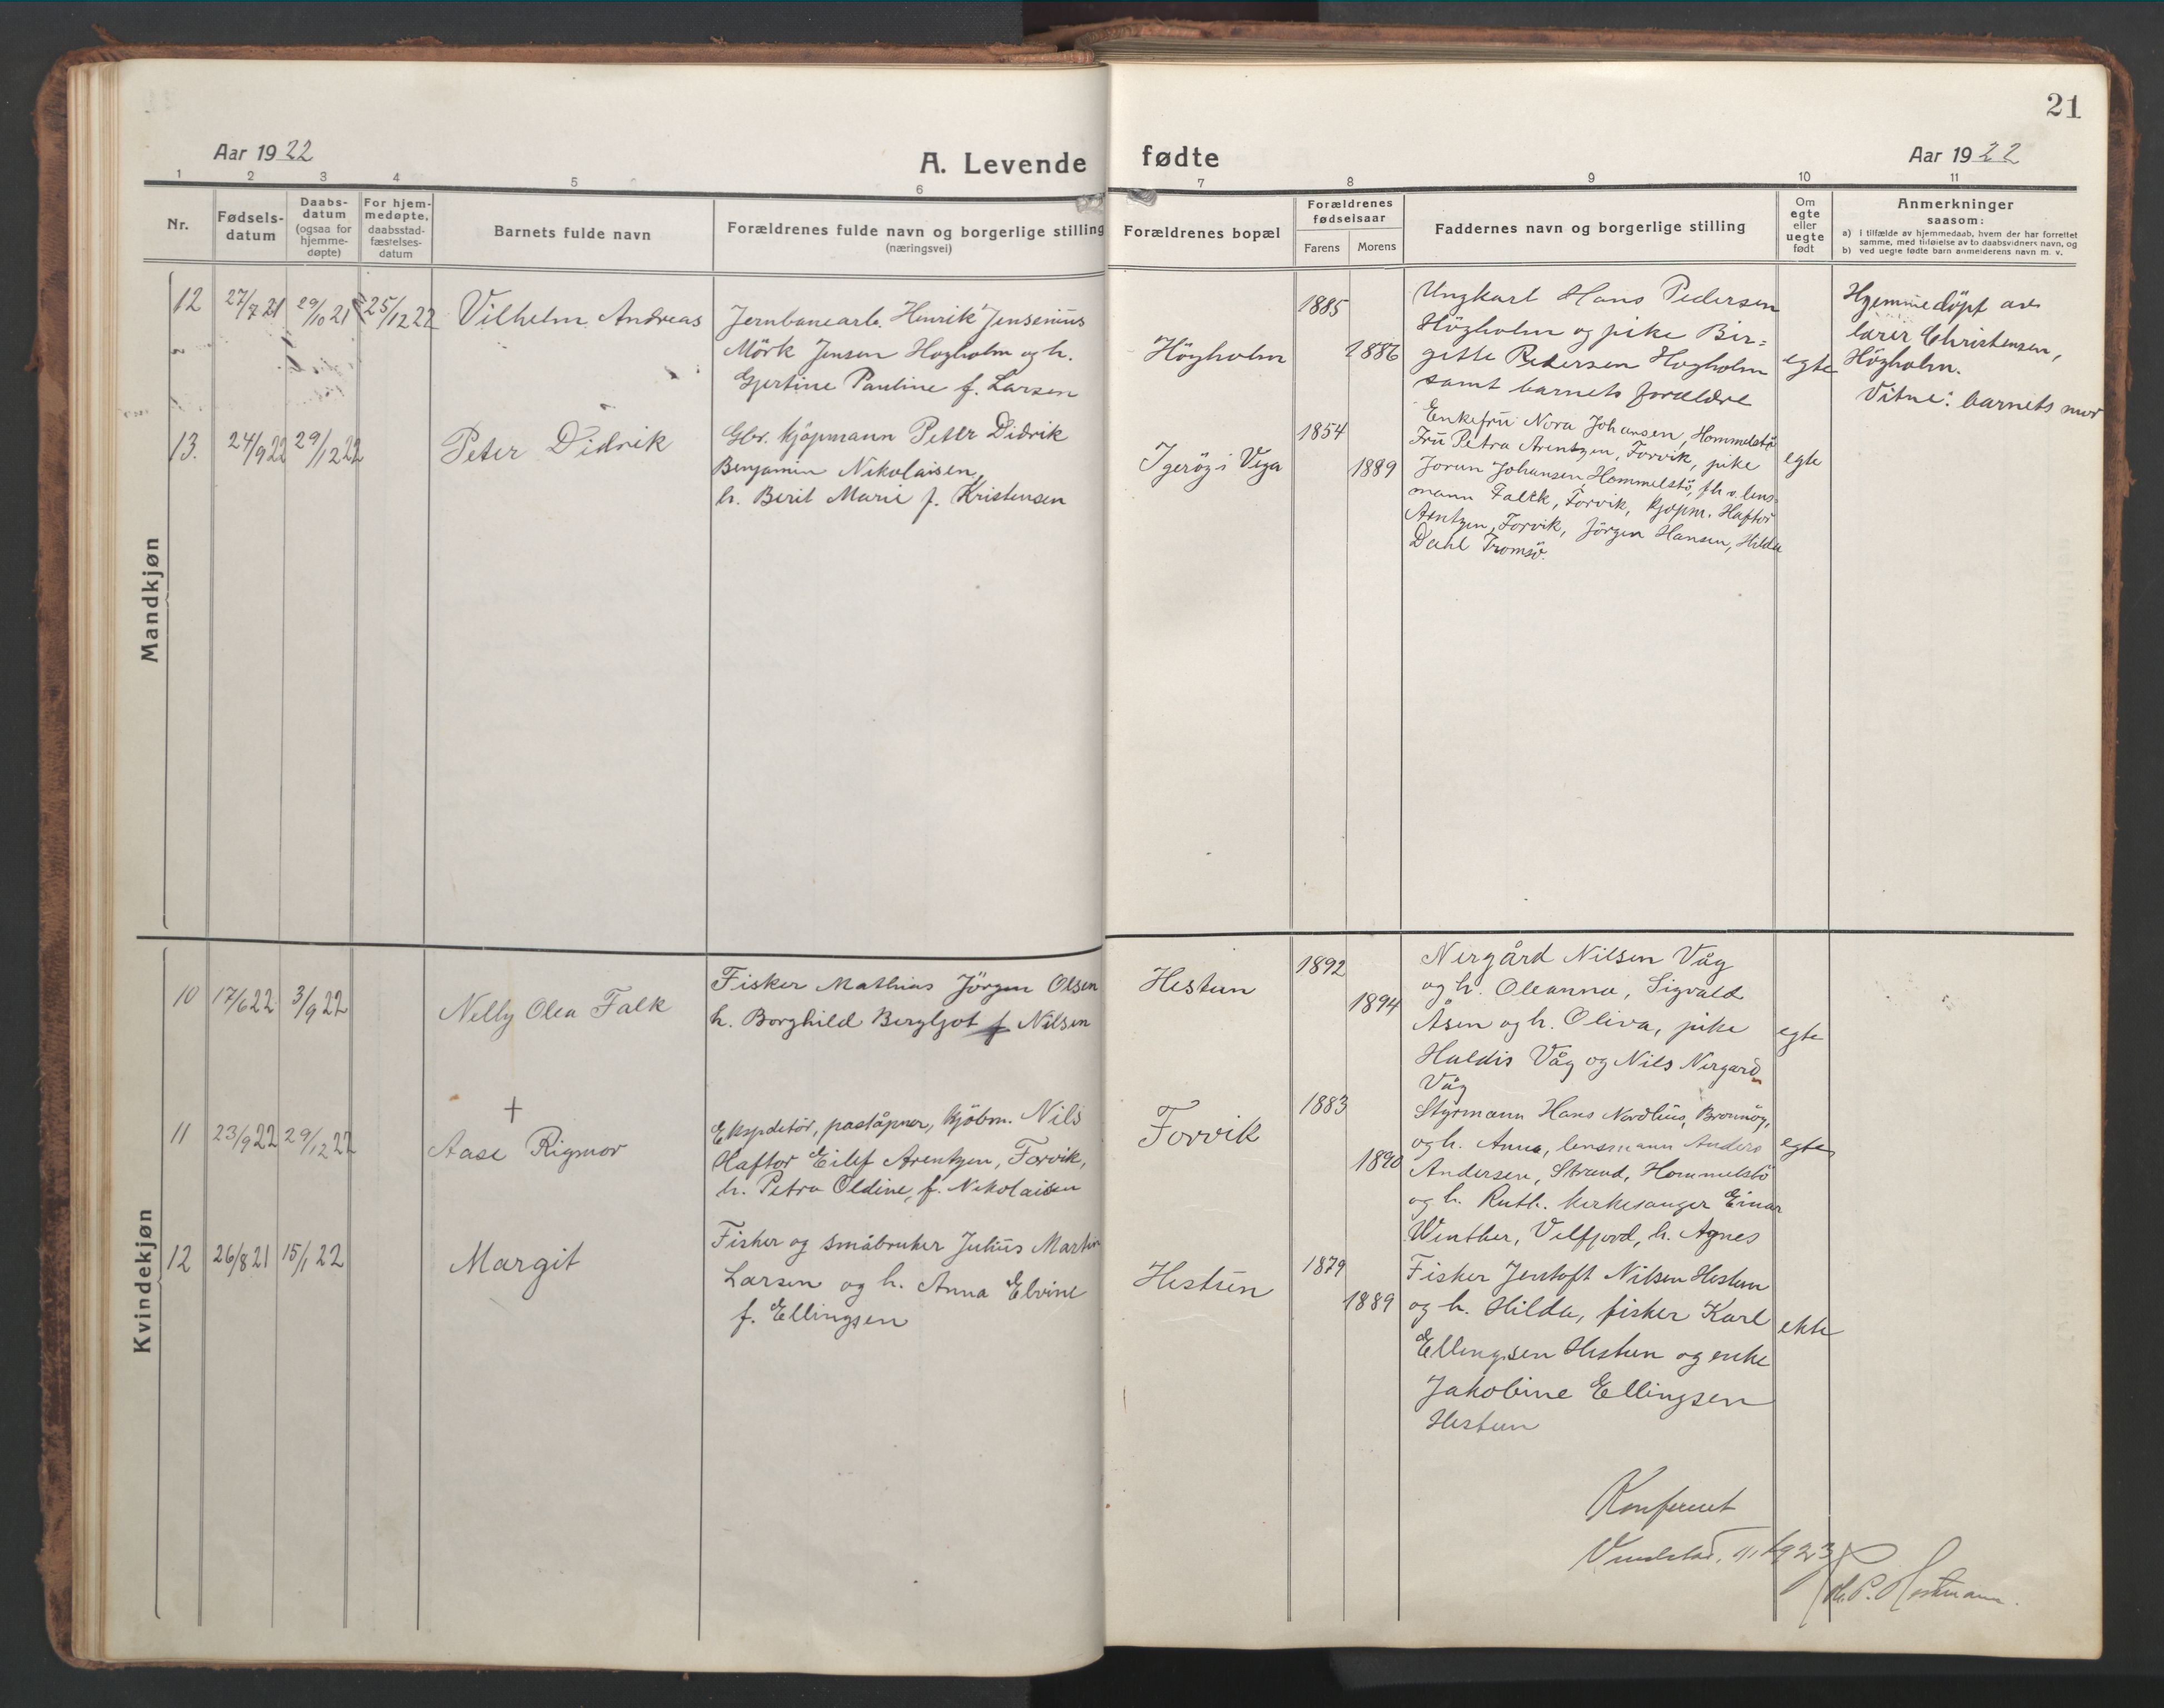 21
Aar 1922
A. Levende fødte
Aar 1922
1 2 3 4 5 6 7 8 9 10 11
Nr.
Fødsels-
datum
Daabs-
datum
(ogsaa for
hjemme-
døpte)
For hjem-
medøpte,
daabsstad-
fæstelses-
datum
Barnets fulde navn
Forældrenes fulde navn og borgerlige stilling
(næringsvei)
Forældrenes bopæl
Forældrenes
fødselsaar
Farens Morens
Faddernes navn og borgerlige stilling
Om
egte
eller
uegte
født
Anmerkninger
saasom:
a) i tilfælde av hjemmedaab, hvem der har forrettet
samme, med tilføielse av to daabsvidners navn, og
b) ved uegte fødte barn anmelderens navn m. v.
Mandkjøn
12 27/7 21 29/10 21 25/12 22 Vilhelm Andreas
Jernbanearb. Henrik Jensenius
Mörk Jensen Høgholm og h.
Gjertine Pauline f. Larsen
Höyholm
1885
1886
Ungkarl Hans Pedersen
Högholm og pike Bir=
gitte Pedersen Hogholm
samt barnets forældre
egte
Hjemmedöpt av
lærer Christensen,
Högholm.
Vitne: barnets mor
13. 24/9 22 29/12 22 Peter Didrik
Gbr. kjöpmann Peter Didrik
Benjamin Nikolaisen,
h. Beril Marie f. Kristensen
Igeröy i Vega
1854
1889
Enkefru Nora Johansen, Hommelstö
Fru Petra Arentzen, Forvik, pike
Jorun Johansen, Hommelstö, fh.v. lens=
mann Falck, Forvik, kjøpm. Haftor
Arntzen, Forvik, Jörgen Hansen, Hilda
Dahl Tromsö.
egte
Kvindekjøn
10 17/6 22 3/9 22 Nelly Olea Falk
Fisker Mathias Jörgen Olsen
h. Borghild Bergljot f Nilsen
Hestun
1892
1894
Nergård Nilsen Våg
og h. Oleanna, Sigvald
Åsen og h. Oliva, pike
Haldis Våg og Nils Nergård
Våg
egte
11 23/9 22 29/12 22 + Aase Rigmor
Ekspditör, poståpner, kjöbm. Nils
Haftor Eilef Arentzen, Forvik,
h. Petra Oldine, f. Nikolaisen
Forvik
1883
1890
Styrmann Hans Nordhus, Bronnöy,
og h. Anna, lensmann Anders
Andersen, Strand, Hommelstö
og h. Ruth. kirkesanger Einar
Winther, Velfjord, h. Agnes
egte
12 26/8 21 15/1 22 Margit
Fisker og småbruker Julius Martin
Larsen og h. Anna Elvine
f. Ellingsen
Hestun
1879
1889
Fisker Jentoft Nilsen Hestun
og h. Hilda, fisker Karl
Ellingsen Hestun og enke
Jakobine Ellingsen
Hestun
ekte
Konferert
1/1 1923